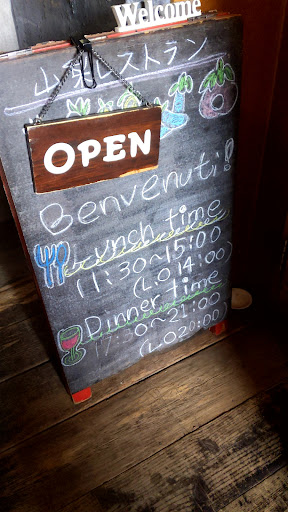 Welcome
山の上レストラン
OPEN
Benvenuti!
Lunch time
11:30~15:00
(L.O 14:00)
Dinner time
17:30~21:00
(L.O 20:00)